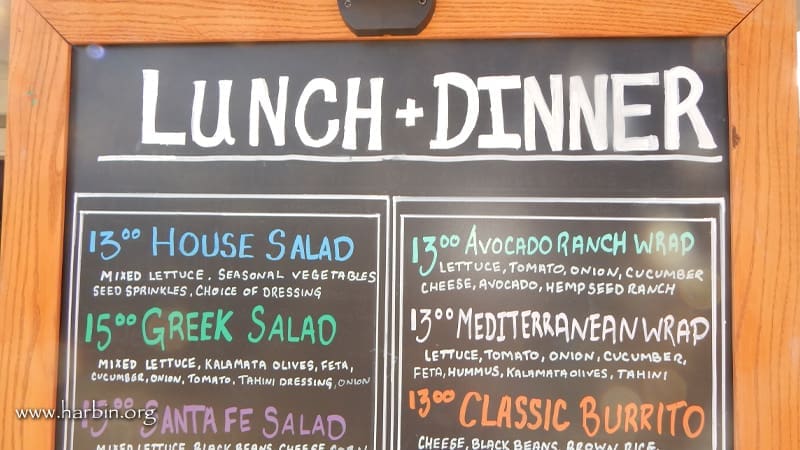 LUNCH + DINNER
13⁰⁰ HOUSE SALAD
MIXED LETTUCE. SEASONAL VEGETABLES
SEED SPRINKLES, CHOICE OF DRESSING
15⁰⁰ GREEK SALAD
MIXED LETTUCE, KALAMATA OLIVES, FETA,
CUCUMBER, ONION, TOMATO, TAHINI DRESSING, ONION
15⁰⁰ SANTA FE SALAD
MIXED LETTUCE, BLACK BEANS, CHEESE, CORN
13⁰⁰ AVOCADO RANCH WRAP
LETTUCE, TOMATO, ONION, CUCUMBER
CHEESE, AVOCADO, HEMP SEED RANCH
13⁰⁰ MEDITERRANEAN WRAP
LETTUCE, TOMATO, ONION, CUCUMBER,
FETA, HUMMUS, KALAMATA OLIVES, TAHINI
13⁰⁰ CLASSIC BURRITO
CHEESE, BLACK BEANS, BROWN RICE,
www.harbin.org